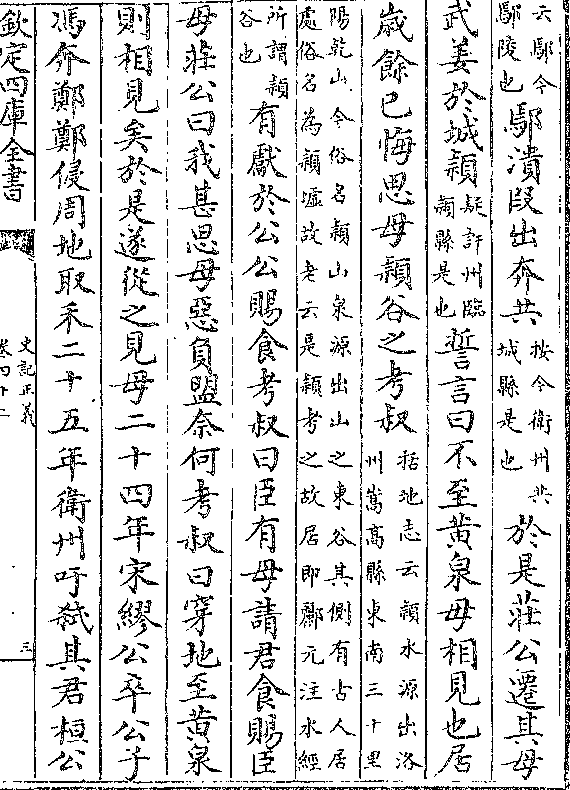 云鄢今鄢陵也鄢潰段出奔共按今衛州共城縣是也於是莊公遷其母
武姜於城潁疑許州臨潁縣是也誓言曰不至黃泉毋相見也居
歳餘已悔思母潁谷之考叔括地志云潁水源出洛州嵩高縣東南三十里
陽乾山今俗名潁山泉源出山之東谷其側有古人居
處俗名為潁墟故老云是潁考之故居即酈元注水經
所謂潁谷也有獻於公公賜食考叔曰臣有母請君食賜臣
母莊公曰我甚思母惡負盟奈何考叔曰穿地至黃泉
則相見矣於是遂從之見母二十四年宋繆公卒公子
馮奔鄭鄭侵周地取禾二十五年衛州吁弑其君桓公
欽定四庫全書
史記正義
卷四十二
三